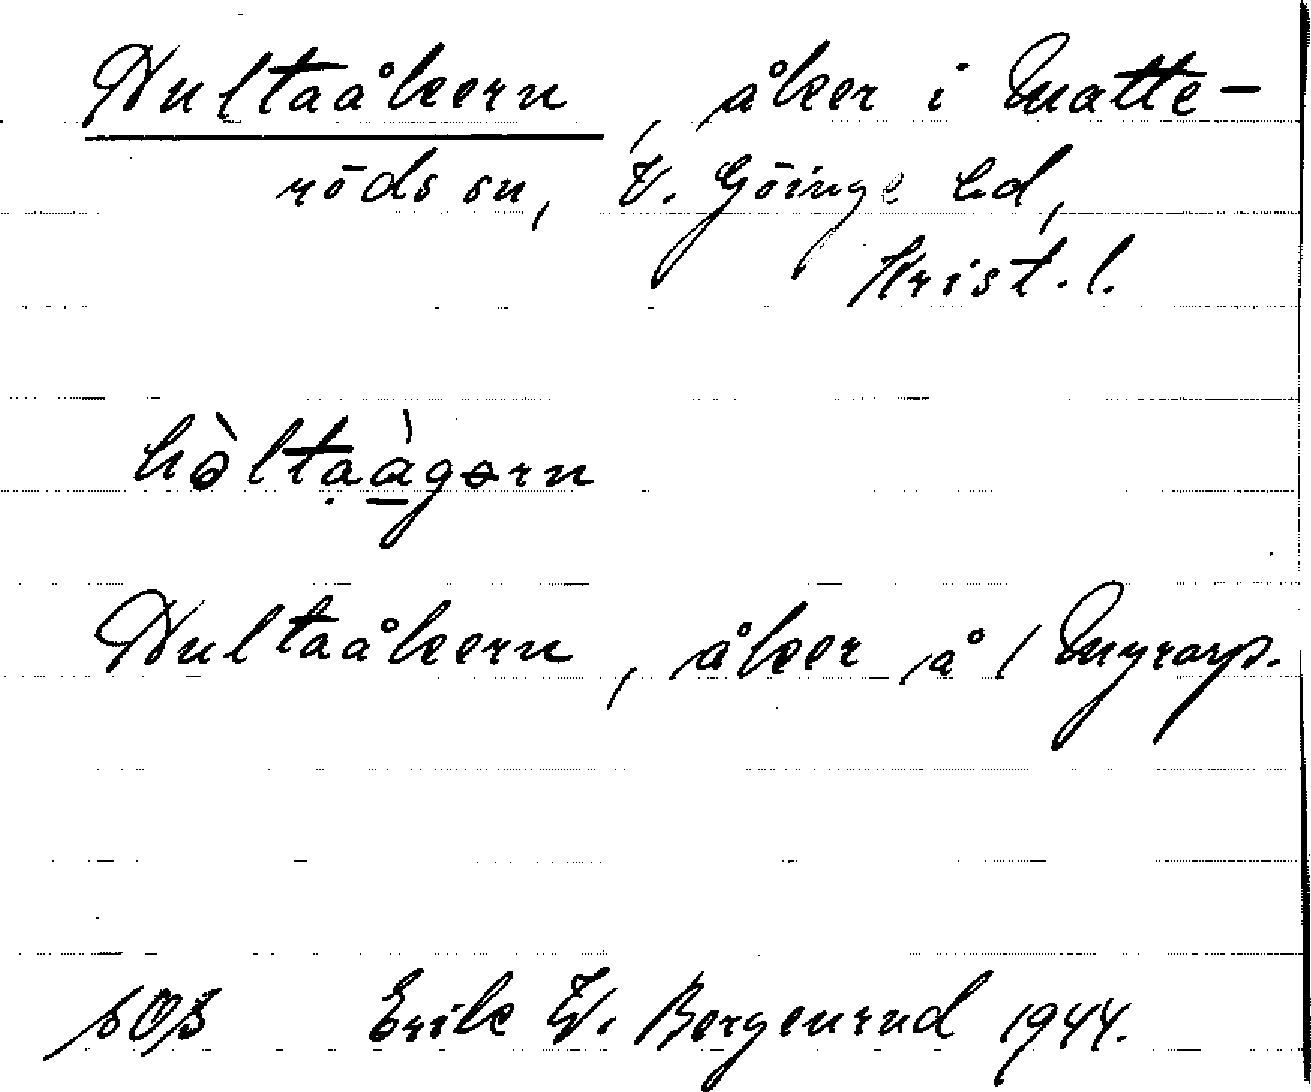 Hultaåkern, åker i Matte-
röds sn, V. Göinge hd,
Krist. l.
hòltaàgərn
Hultaåkern, åker å / Myrarp.
Erik W. Bergenrud 1944.